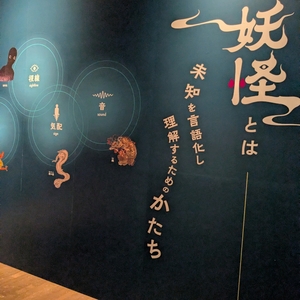 妖怪
とは
未知を言語化し
理解するための
かたち
音
sound
気配
sign